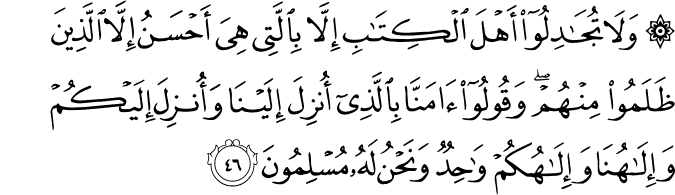 ۞ وَلَا تُجَٰدِلُوٓا۟ أَهْلَ ٱلْكِتَٰبِ إِلَّا بِٱلَّتِى هِىَ أَحْسَنُ إِلَّا ٱلَّذِينَ
ظَلَمُوا۟ مِنْهُمْ ۖ وَقُولُوٓا۟ ءَامَنَّا بِٱلَّذِىٓ أُنزِلَ إِلَيْنَا وَأُنزِلَ إِلَيْكُمْ
وَإِلَٰهُنَا وَإِلَٰهُكُمْ وَٰحِدٌ وَنَحْنُ لَهُۥ مُسْلِمُونَ ﴿٤٦﴾